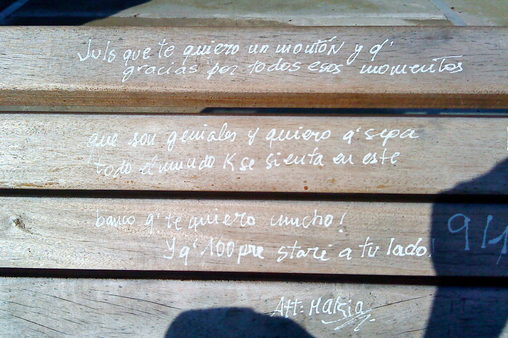 Juls que te quiero un montón y q'
gracias por todos esos momentos
que son geniales y quiero q' sepa
todo el mundo K se sienta en este
banco q' te quiero mucho!
Y q' 100pre staré a tu lado.
Att:
91